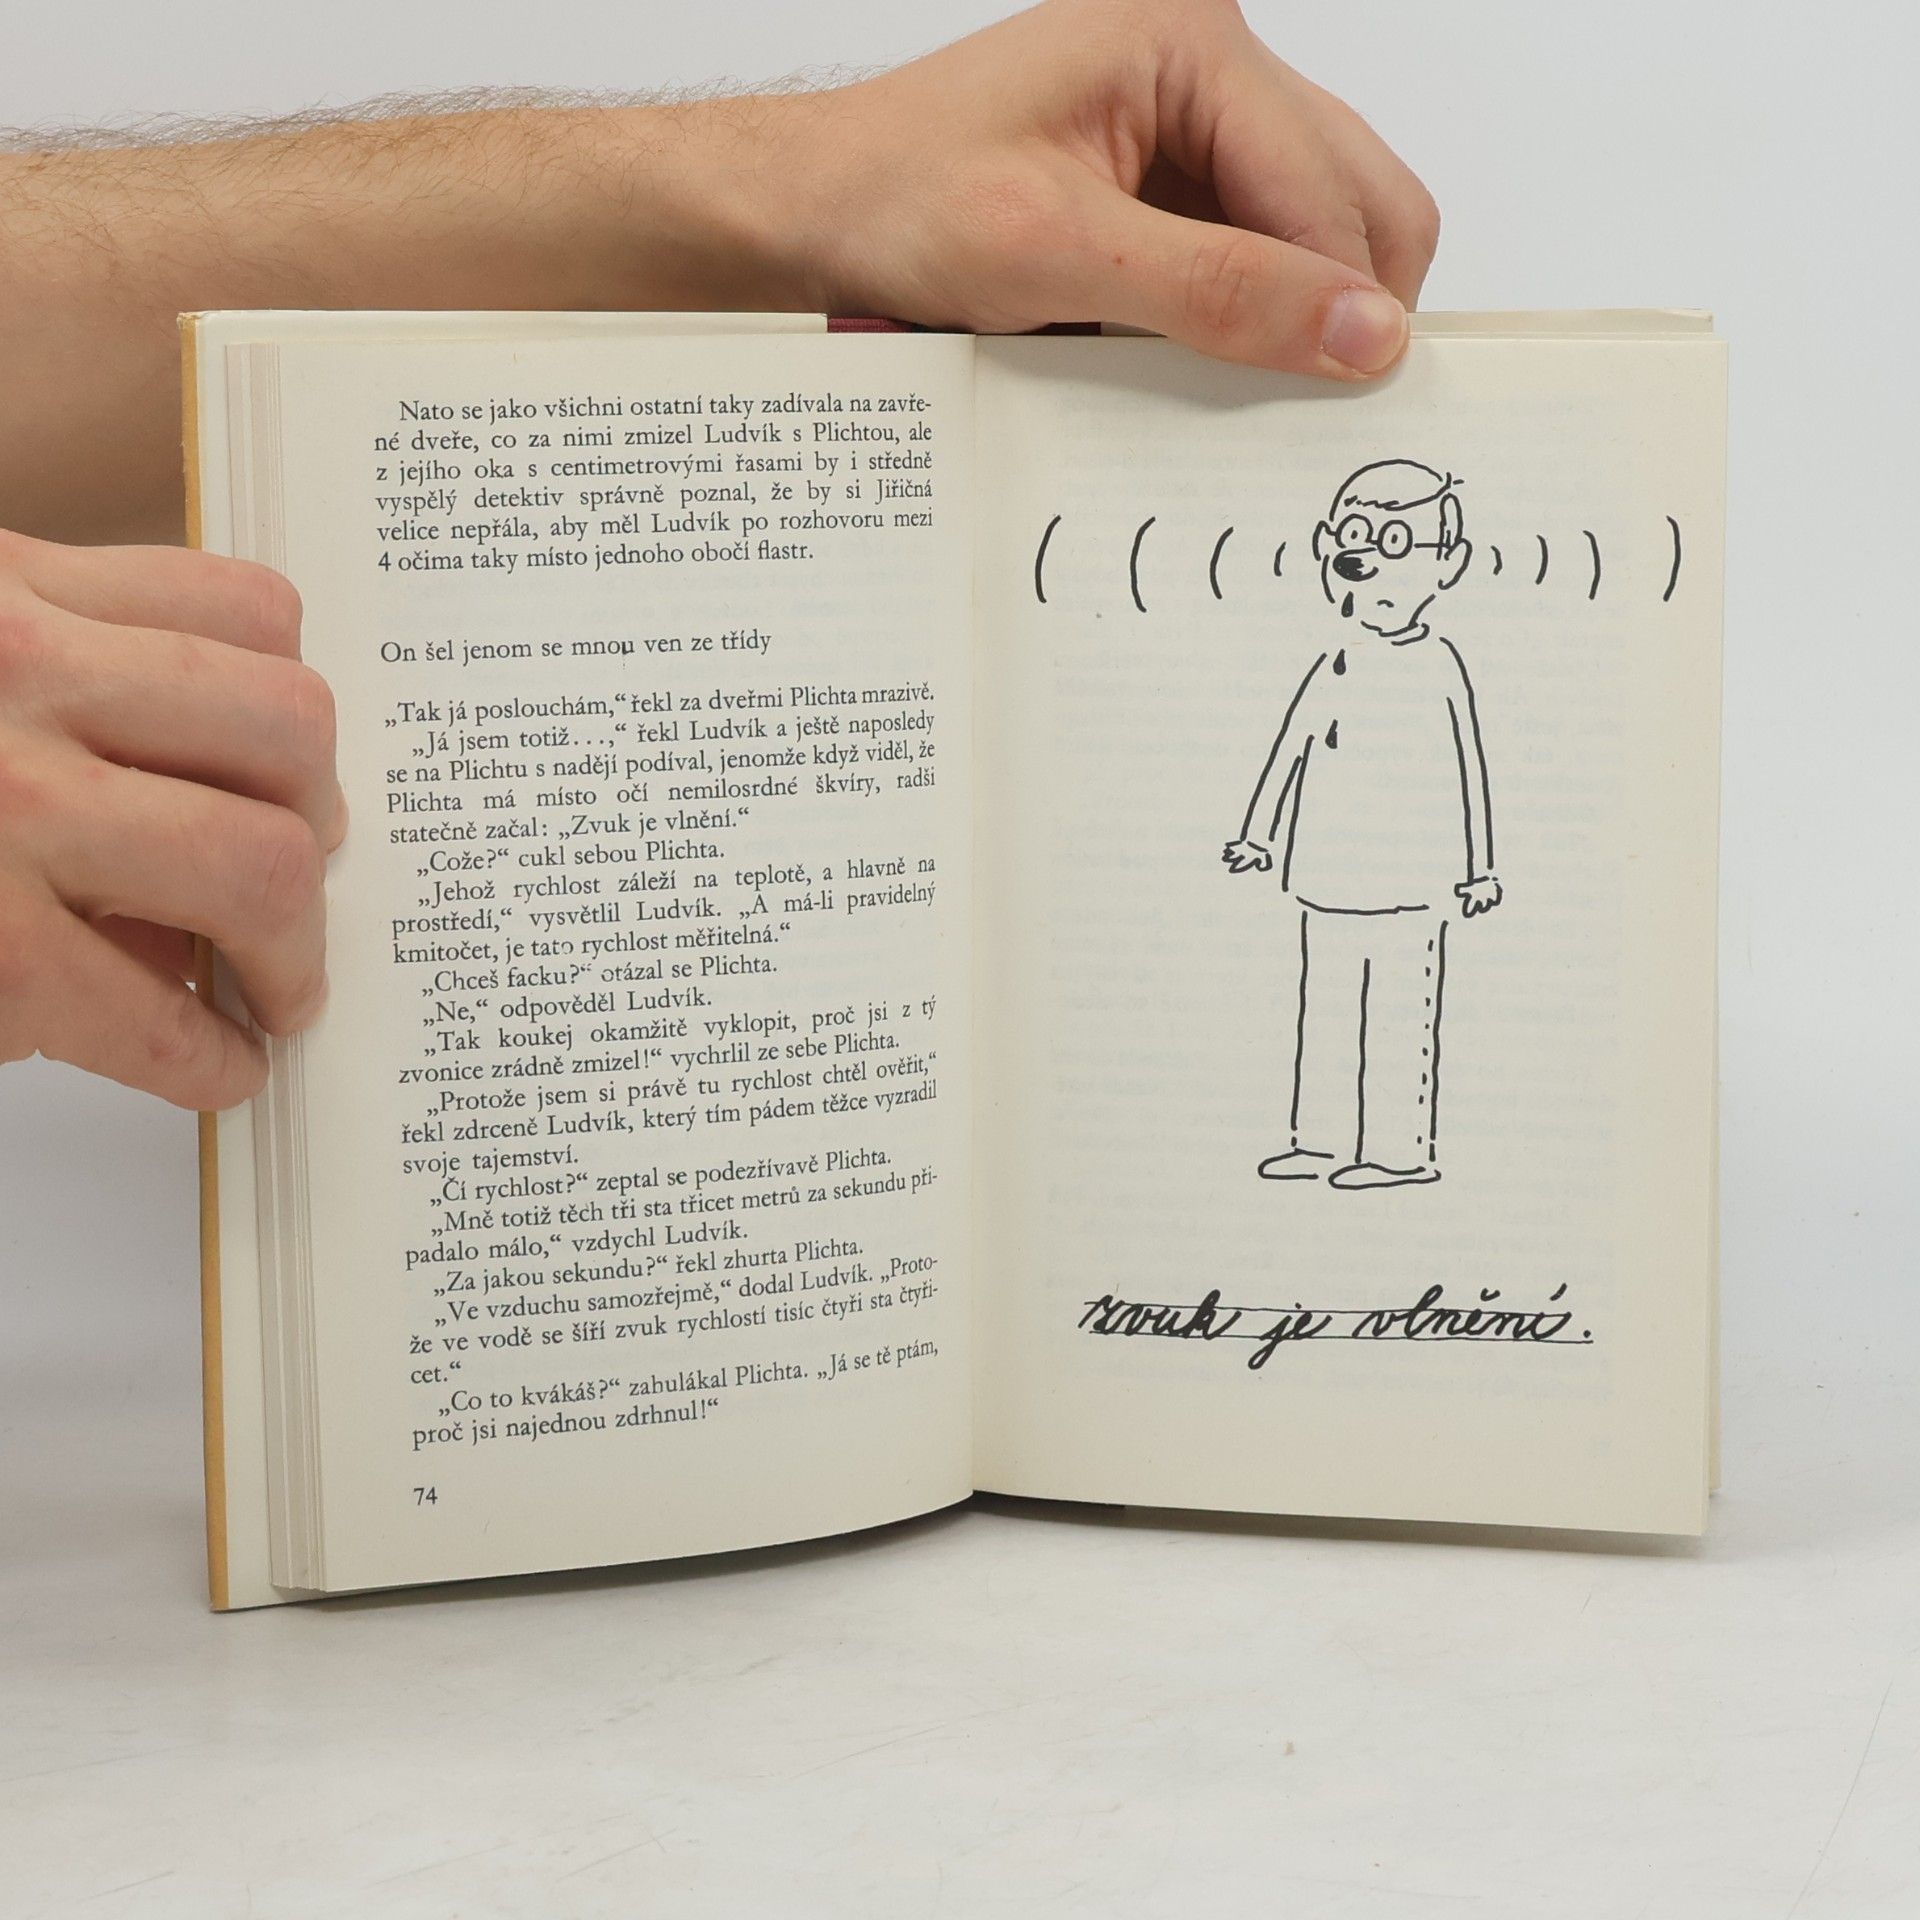 Nato se jako všichni ostatní taky zadívala na zavře-
né dveře, co za nimi zmizel Ludvík s Plichtou, ale
z jejího oka s centimetrovými řasami by i středně
vyspělý detektiv správně poznal, že by si Jiřičná
velice nepřála, aby měl Ludvík po rozhovoru mezi
4 očima taky místo jednoho obočí flastr.
On šel jenom se mnou ven ze třídy
„Tak já poslouchám,“ řekl za dveřmi Plichta mrazivě.
„Já jsem totiž...,“ řekl Ludvík a ještě naposledy
se na Plichtu s nadějí podíval, jenomže když viděl, že
Plichta má místo očí nemilosrdné škvíry, radši
statečně začal: „Zvuk je vlnění.“
„Cože?“ cukl sebou Plichta.
„Jehož rychlost záleží na teplotě, a hlavně na
prostředí,“ vysvětlil Ludvík. „A má-li pravidelný
kmitočet, je tato rychlost měřitelná.“
„Chceš facku?“ otázal se Plichta.
„Ne,“ odpověděl Ludvík.
„Tak koukej okamžitě vyklopit, proč jsi z tý
zvonice zrádně zmizel!“ vychrlil ze sebe Plichta.
„Protože jsem si právě tu rychlost chtěl ověřit,“
řekl zdrceně Ludvík, který tím pádem těžce vyzradil
svoje tajemství.
„Čí rychlost?“ zeptal se podezřívavě Plichta.
„Mně totiž těch tři sta třicet metrů za sekundu při-
padalo málo,“ vzdychl Ludvík.
„Za jakou sekundu?“ řekl zhurta Plichta.
„Ve vzduchu samozřejmě,“ dodal Ludvík. „Proto-
že ve vodě se šíří zvuk rychlostí tisíc čtyři sta čtyři-
cet.“
„Co to kvákáš?“ zahulákal Plichta. „Já se tě ptám,
proč jsi najednou zdrhnul!“
74
zvuk je vlnění.